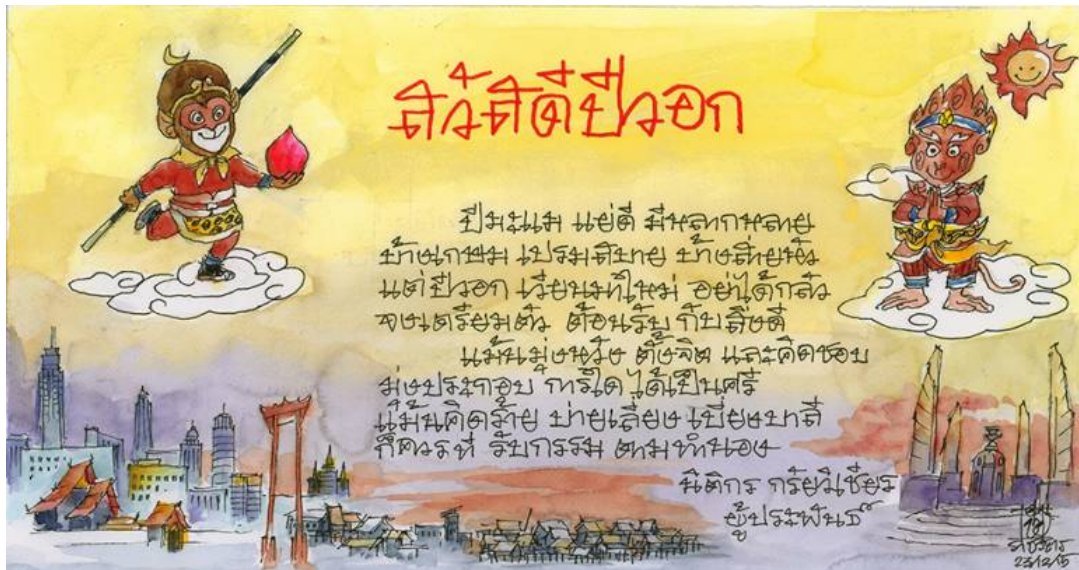 สวัสดีปีวอก
ปีมะแม แย่ดี มีหลากหลาย
บ้างเกษม เปรมสบาย บ้างส่ายหัว
แต่ปีวอก เวียนมาใหม่ อย่าได้กลัว
จงเตรียมตัว ต้อนรับ กับสิ่งดี
แม้นมุ่งหวัง ตั้งจิต และคิดชอบ
มุ่งประกอบ การใด ได้เป็นศรี
แม้นคิดร้าย บ่ายเลี่ยง เบี่ยงบาลี
ก็ควรที่ รับกรรม ตามทำนอง
นิติกร กรัยวิเชียร
ผู้ประพันธ์
23/12/15